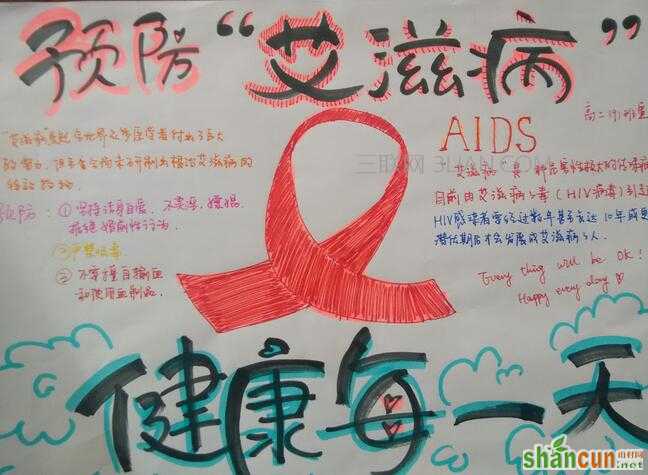 预防“艾滋病”
AIDS
高二(1)班
"艾滋病"虽然全世界众多医学者付出了巨大
的努力,但至今尚未研制出根治艾滋病的
特效药物.
预防:①坚持洁身自爱、不
婚前性行为
②严禁吸毒
不要擅自输血
和使用血制品.
艾滋病是一种危害性极大的传染病
目前由艾滋病病毒(HIV病毒)引起
HIV感染者要经过数年甚至长达10年或更
潜伏期后才会发展成艾滋病病人.
Every thing will be OK!
Happy every day
三联网 3LIAN.COM
健康每一天
shancun
山村网
.net